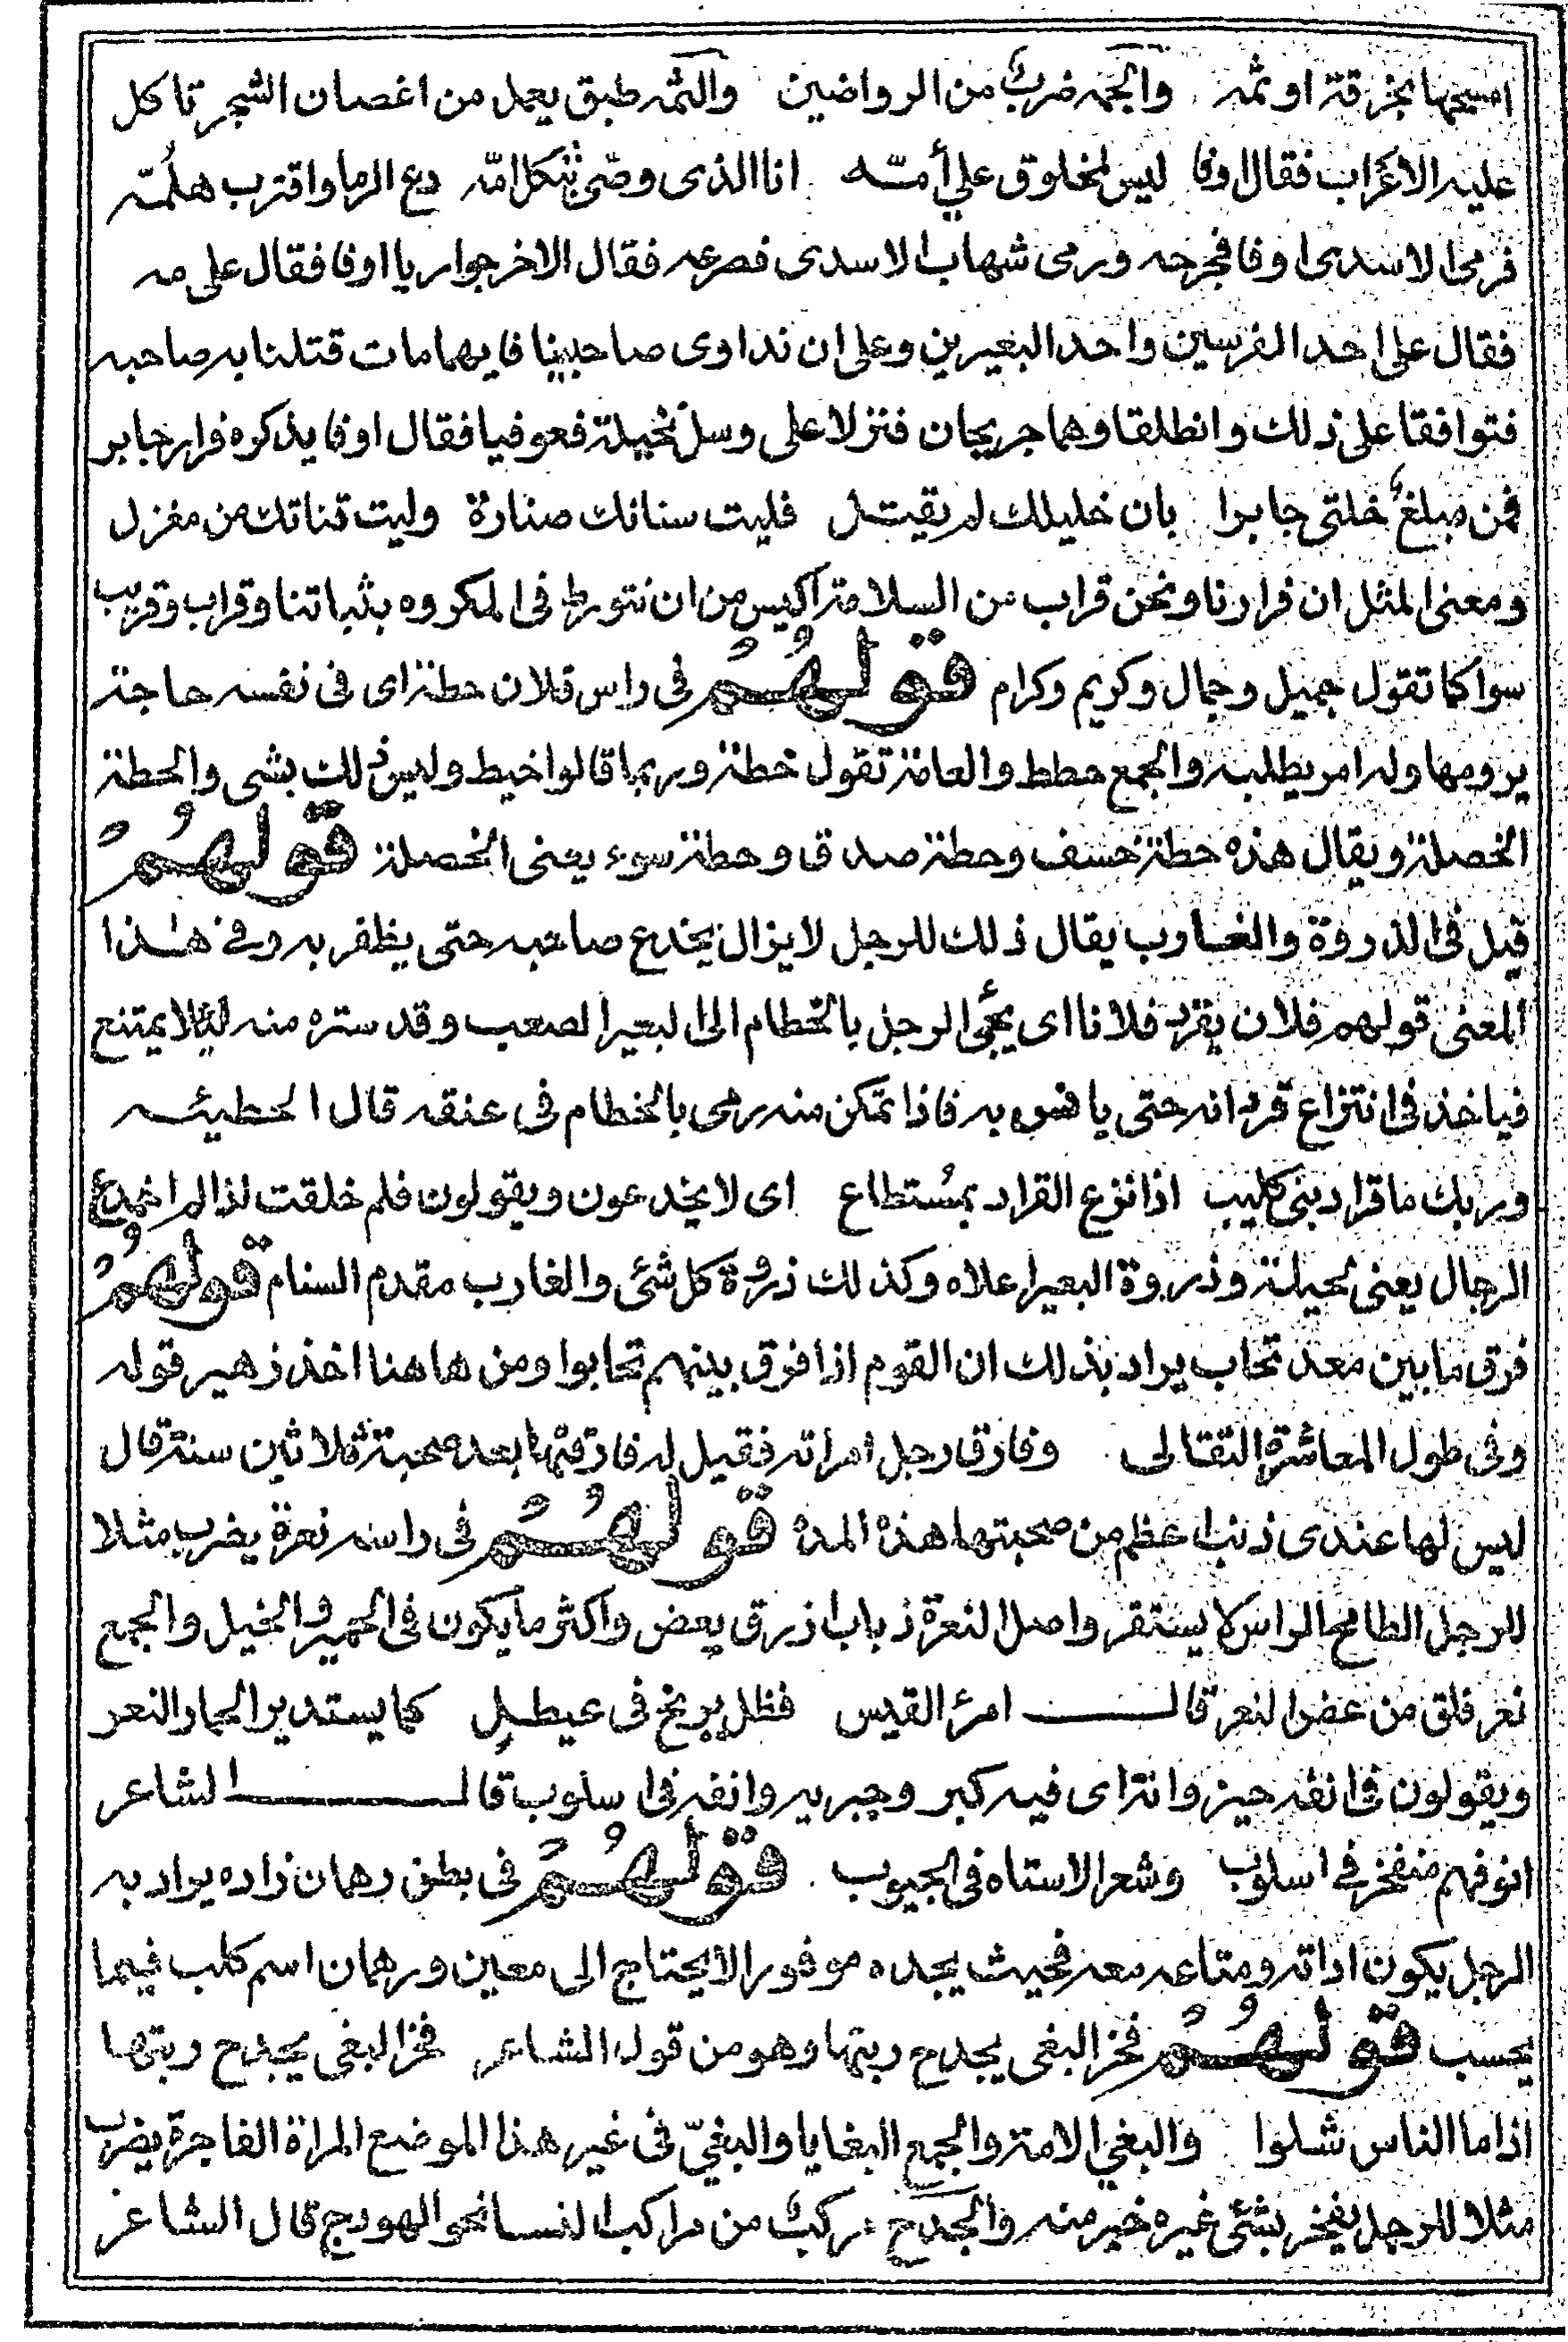 امسيحها بخرقة او ثمه والجمه ضربٌ من الرواضين والثمه طبق يعمل من اغصان الشجر تاكل
عليه الاعراب فقال اوفا ليس لمخلوق علي أمتـه انا الذى وصّى بثكل امّه دع الرما واقترب هلُمّه
فرمى الاسدى اوفا فجرحه ورمى شهاب الاسدى فصرعه فقال الاخر جوار يا اوفا فقال على مه
فقال على احد الفرسين واحد البعيرين وعلى ان نداوى صاحبينا فايهما مات قتلنا به صاحبه
فتوافقا على ذلك وانطلقا وهما جريحان فنزلا على وسل نخيلة فعوفيا فقال اوفا يذكره فرار جابر
فمن مبلغٌ خلتى جابرا بان خليلك لم يقيتل فليت سنانك صنارة وليت قناتك من مغزل
ومعنى المثل ان فرارنا ونحن قراب من السلامة اكيس من ان نتورط فى المكروه بثباتنا وقراب وقريب
سوا كما تقول جميل وجمال وكريم وكرام قولهم فى راس فلان حطة اى فى نفسه حاجة
يرومها وله امر يطلبه والجمع حطط والعامة تقول خطة وربما قالوا خيط وليس ذلك بشى والحطة
الخصلة ويقال هذه حطة خسف وحطة صدق وحطة سوء يعنى الخصلة قولهم
قيل فى الذروة والغارب يقال ذلك للرجل لا يزال يخدع صاحبه حتى يظفر به وفى هذا
المعنى قولهم فلان يقرد فلانا اى يجئ الرجل بالخطام الى البعير الصعب وقد ستره منه ليلا يمتنع
فياخذ فى انتزاع قردانه حتى يانس به فاذا تمكن منه رمى بالخطام فى عنقه قال الحطيئه
وربك ما قراد بنى كليب اذا نزع القراد بمُستطاع اى لا يخدعون ويقولون فلم خلقت اذا لم اخدع
الرجال يعنى لحيلة وذروة البعير اعلاه وكذلك ذروة كل شئ والغارب مقدم السنام قولهم
فرق ما بين معد تحاب يراد بذلك ان القوم اذا فرق بينهم تحابوا ومن هاهنا اخذ زهير قوله
وفى طول المعاشرة التقالى وفارق رجل امراته فقيل له فارقتها بعد صحبة ثلاثين سنة قال
ليس لها عندى ذنب اعظم من صحبتها هذه المدة قولهم فى راسه نعرة يضرب مثلا
للرجل الطامح الراس لا يستقر واصل النعرة ذباب ازرق يعض واكثر ما يكون فى الحمير والخيل والجمع
نعر فلق من عض النعر قال امرئ القيس فظل يرنخ فى عيطلٍ كما يستدير الحمار النعر
ويقولون فى انفه حيز وانتراى فيه كبر وجبريه وانفه فى اسلوب قال الشاعر
انوفهم منفخر فى اسلوب وشعر الاستاه فى الجيوب قولهم فى بطن رهمان زاده يراد به
الرجل يكون اداته ومتاعه معه فحيث يجده موفورا لا يحتاج الى معين ورهمان اسم كلب فيما
يحسب قولهم فخر البغى يجدح ربتها وهو من قول الشاعر فخر البغى بجدح ربتها
اذا ما الناس شلوا والبغي الامة والجمع البغايا والبغيّ فى غير هذا الموضع المراة الفاجرة يضرب
مثلا للرجل يفخر بشئ غيره خير منه والجدح مركبٌ من مراكب النسا نحو الهودج قال الشاعر